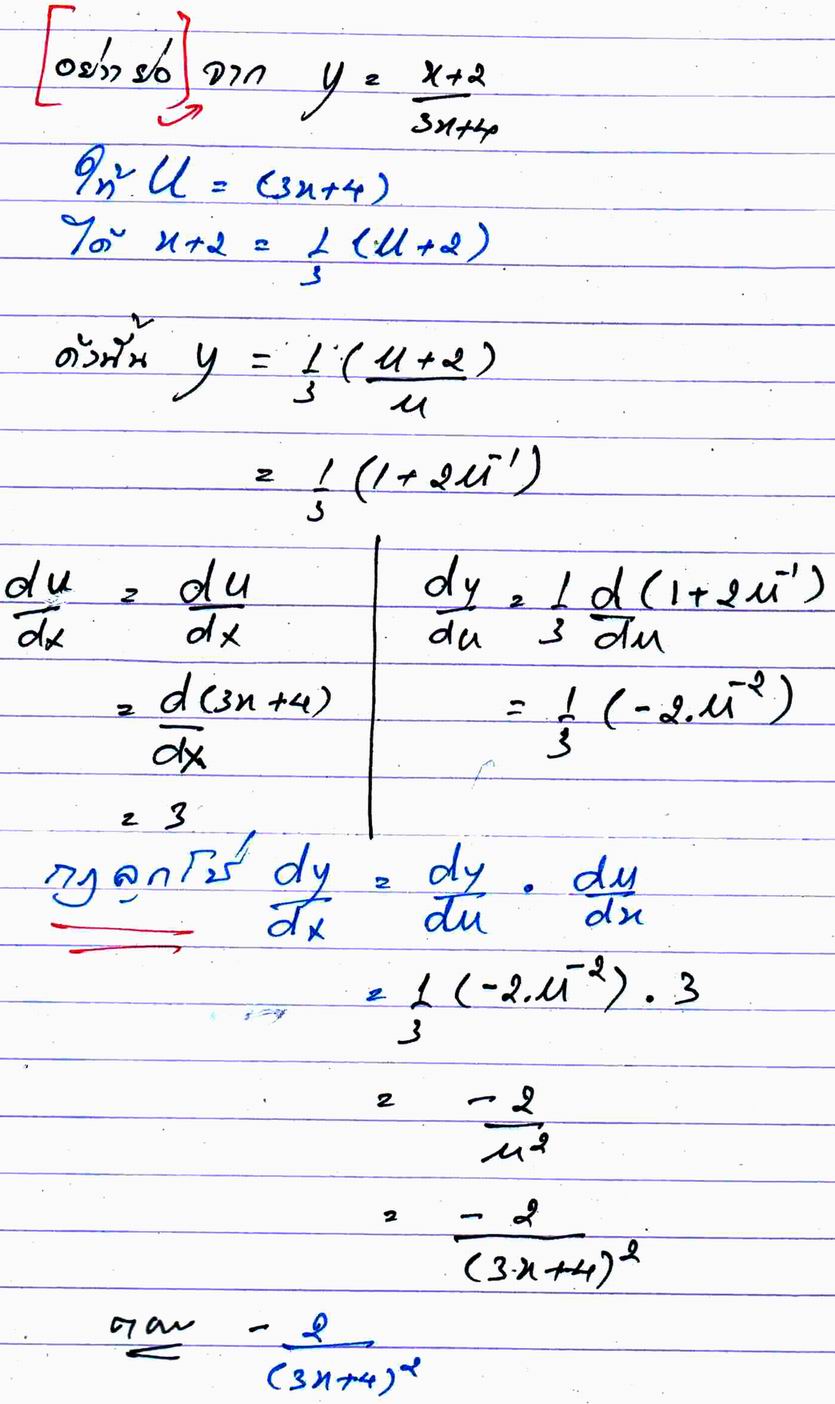 [อย่าย่อ] จาก y = x+2/3x+4
ให้ u = (3x+4)
ได้ x+2 = 1/3 (u+2)
ดังนั้น y = 1/3 (u+2/u)
= 1/3 (1+2u⁻¹)
du/dx = du/dx
= d/dx (3x+4)
= 3
dy/du = 1/3 d/du (1+2u⁻¹)
= 1/3 (-2.u⁻²)
กฎลูกโซ่ dy/dx = dy/du . du/dx
= 1/3 (-2.u⁻²) . 3
= -2/u²
= -2/(3x+4)²
ตอบ -2/(3x+4)²